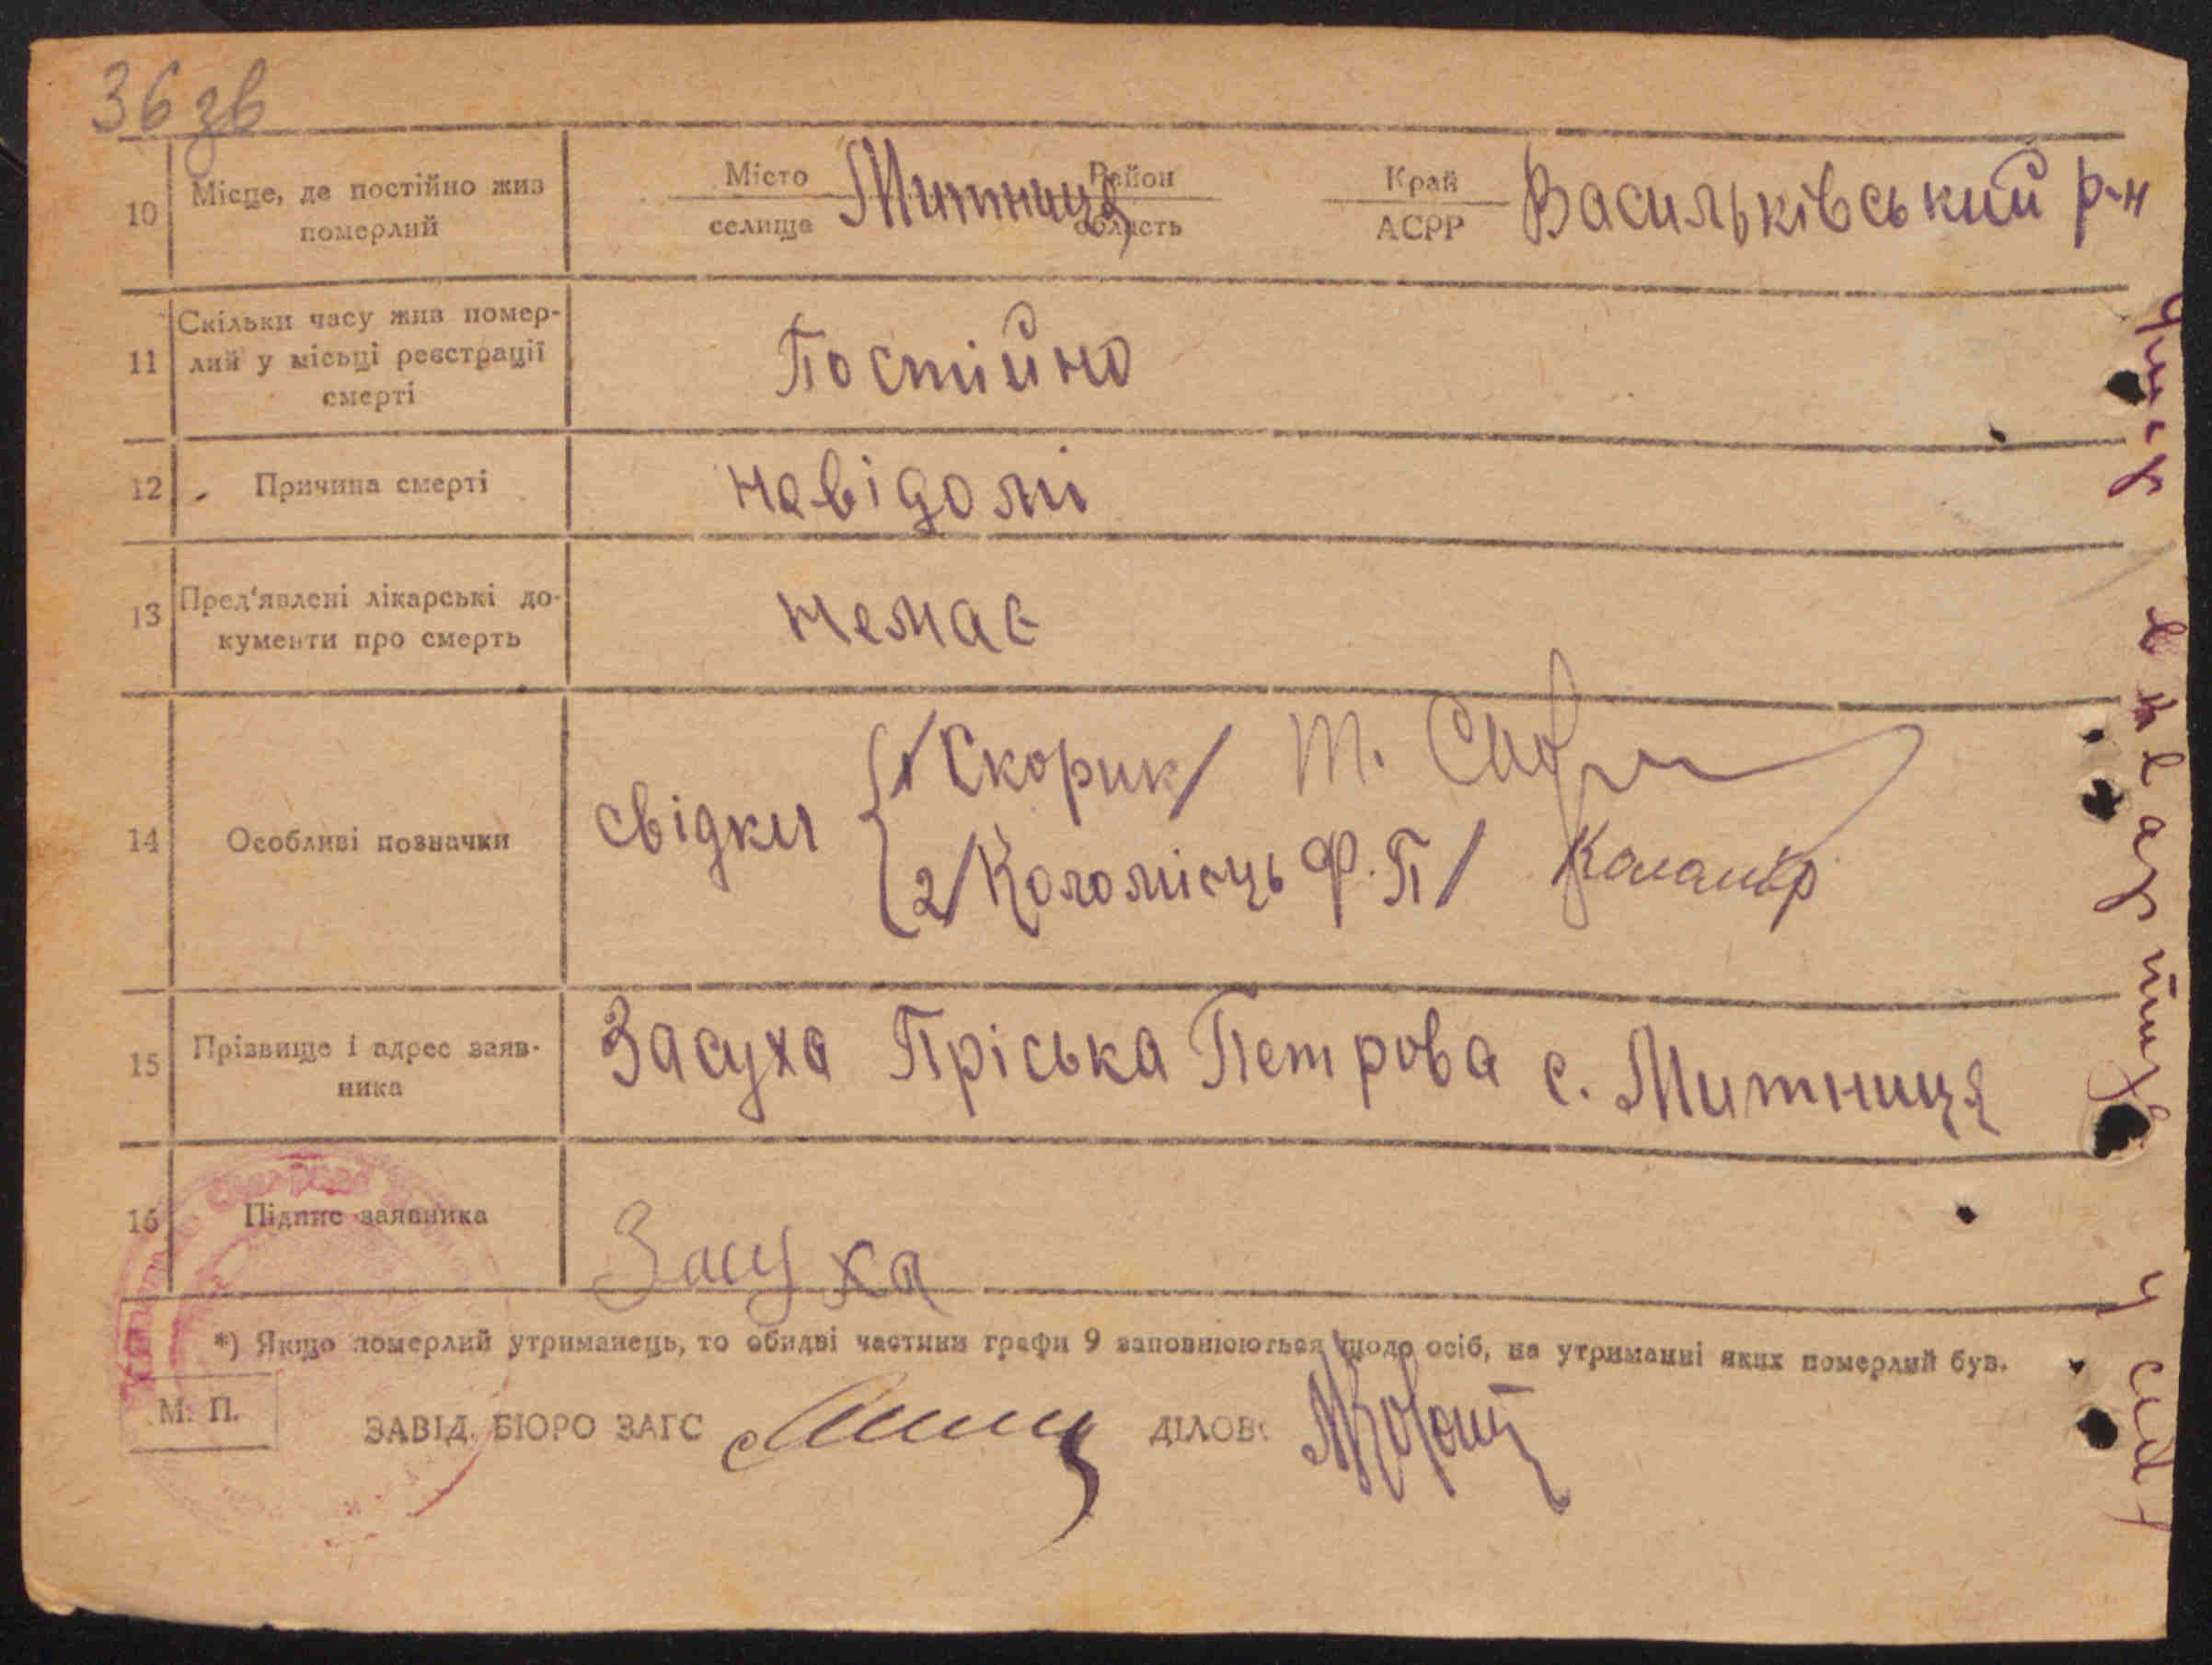 36 зв
10 Місце, де постійно жив
померлий
Місто Митниця Район Край Васильківський р-н
селище область АСРР
11 Скільки часу жив помер-
лий у місьці реєстрації
смерті
Постійно
12 Причина смерті
невідомі
13 Пред'явлені лікарські до-
кументи про смерть
немає
14 Особливі позначки
свідки
1/ Скорик / Т.
2/ Коломієць Ф. П /
15 Прізвище і адрес заяв-
ника
Засуха Пріська Петрова с. Митниця
16 Підпис заявника
Засуха
*) Якщо померлий утриманець, то обидві частини графи 9 заповнюються щодо осіб, на утриманні яких померлий був.
М. П.
ЗАВІД. БЮРО ЗАГС ДІЛОВ